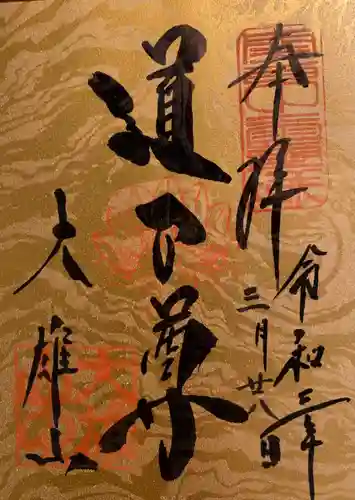 奉拝
令和
三月廿八日
道了尊
大雄山